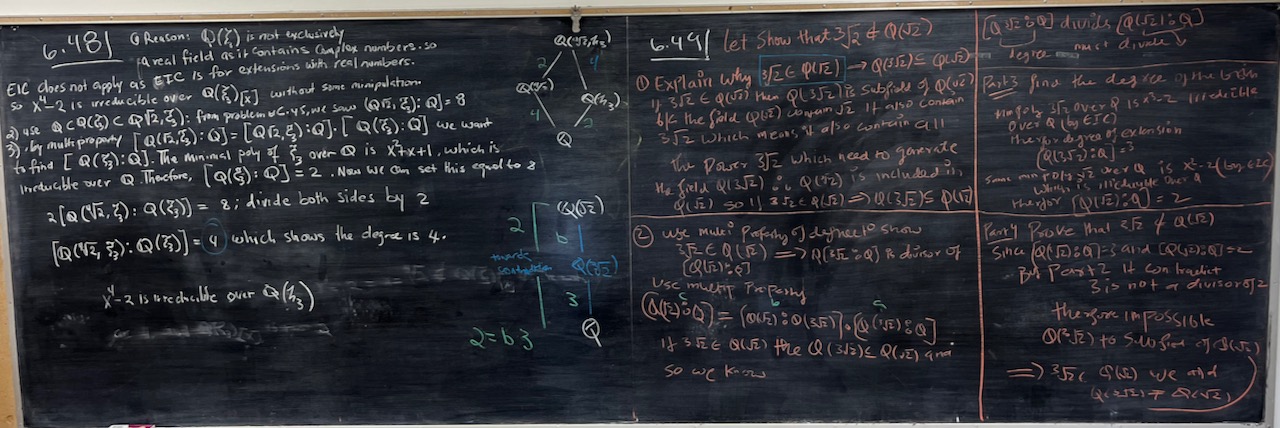 6.48
① Reason: Q(ζ₃) is not exclusively
a real field as it contains complex numbers. so
EIC does not apply as ETC is for extensions with real numbers.
so x⁴-2 is irreducible over Q(ζ₃)[x] without some manipulation
2) use Q⊂Q(ζ₃)⊂Q(⁴√2,ζ₃): from problem 6.45, we saw [Q(⁴√2,ζ₃):Q]=8
3) by multi property [Q(⁴√2,ζ₃):Q]=[Q(⁴√2,ζ₃):Q]·[Q(ζ₃):Q] we want
to find [Q(ζ₃):Q]. The minimal poly of ζ₃ over Q is x²+x+1, which is
irreducible over Q. Therefore, [Q(ζ₃):Q]=2. Now we can set this equal to 8
2[Q(⁴√2,ζ₃):Q(ζ₃)]=8; divide both sides by 2
[Q(⁴√2,ζ₃):Q(ζ₃)]=4 which shows the degree is 4.
x⁴-2 is irreducible over Q(ζ₃)
Q(⁴√2,ζ₃)
2 4
Q(⁴√2) Q(ζ₃)
4 2
Q
Q(√2)
2 b
Q(³√2)
3
Q
2=b3
6.49
let show that 3√2 ∉ Q(√2)
① Explain why 3√2 ∈ Q(√2) → Q(3√2) ⊆ Q(√2)
If 3√2 ∈ Q(√2) then Q(3√2) is subfield of Q(√2)
b/c the field Q(√2) contain √2 it also contain
3√2 which means it also contain all
the Power 3√2 which need to generate
the field Q(3√2) ∴ Q(3√2) is included in
Q(√2) so if 3√2 ∈ Q(√2) ⟹ Q(3√2) ⊆ Q(√2)
② use multi Property of degree to show
3√2 ∈ Q(√2) ⟹ Q[3√2:Q] is divisor of
[Q(√2):Q]
Use multip Property
c b a
[Q(√2):Q] = [Q(√2):Q(3√2)]·[Q(3√2):Q]
If 3√2 ∈ Q(√2) the Q(3√2) ⊆ Q(√2) and
so we know
[Q(3√2):Q] divids [Q(√2):Q]
degree must divide
Part 3 find the degree of the both
min poly 3√2 over Q is x³-2 irreducible
over Q (by EIC)
therfor degree of extension
[Q(3√2):Q]=3
same min poly √2 over Q is x²-2 (by EIC)
which is irreducible over Q
therfor [Q(√2):Q]=2
Part 4 Prove that 3√2 ∉ Q(√2)
Since [Q(3√2):Q]=3 and [Q(√2):Q]=2
But Part 2 it contradict
3 is not a divisor of 2
therfore impossible
Q(3√2) to subfield of Q(√2)
⟹ 3√2 ∈ Q(√2)
Q(3√2) ≠ Q(√2)